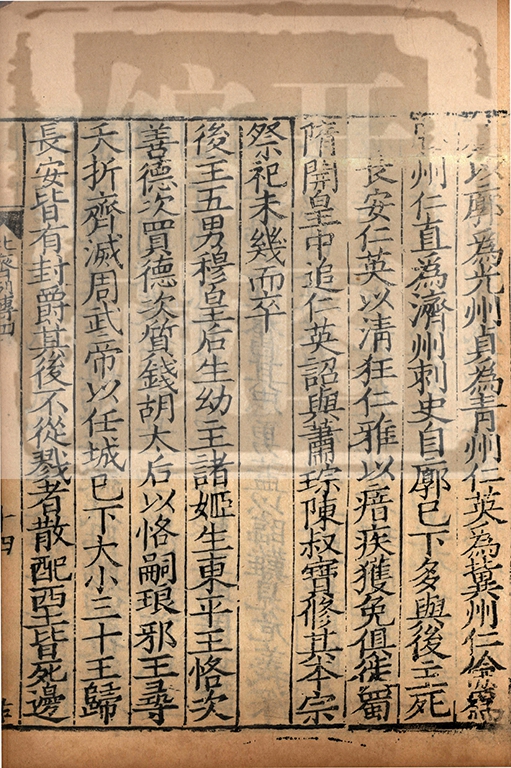 以廓為光州貞為青州仁英為兾州仁儉為
州仁直為濟州刺史自廓已下多與後主死
長安仁英以清狂仁雅以瘖疾獲免俱徙蜀
隋開皇中追仁英詔與蕭琮陳叔寶修其本宗
祭祀未幾而卒
後王五男穆皇后生幼主諸姬生東平王恪次
善德次買德次質錢胡太后以恪嗣琅邪王尋
夭折齊滅周武帝以任城已下大小三十王歸
長安皆有封爵其後不從戮者散配西土皆死邊
北齊列傳四
十四